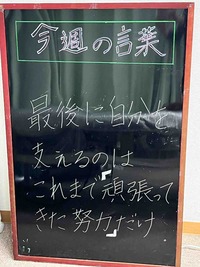 今週の言葉
最後に自分を
支えるのは
これまで頑張って
きた努力だけ